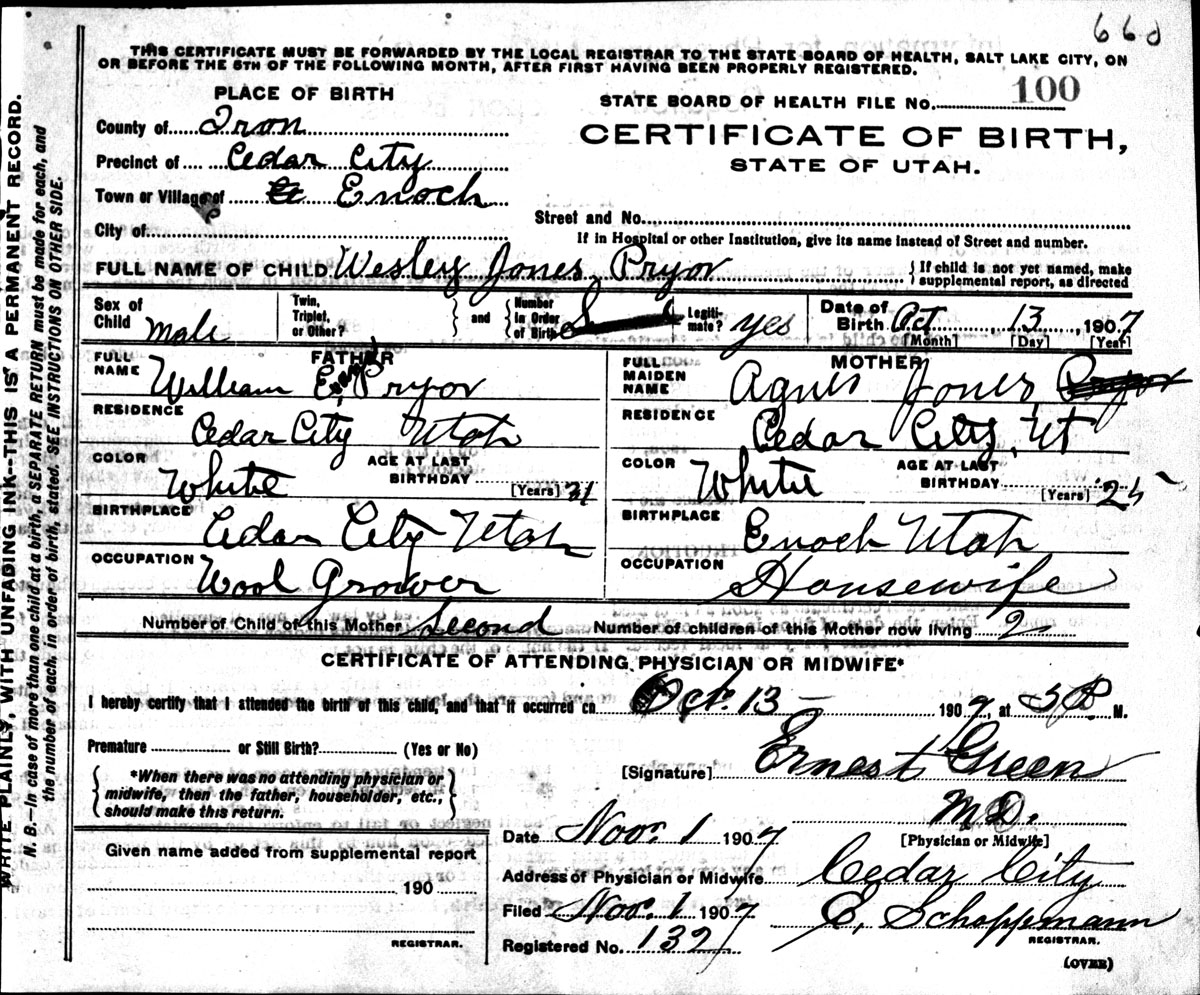 660
THIS CERTIFICATE MUST BE FORWARDED BY THE LOCAL REGISTRAR TO THE STATE BOARD OF HEALTH, SALT LAKE CITY, ON
OR BEFORE THE 5TH OF THE FOLLOWING MONTH, AFTER FIRST HAVING BEEN PROPERLY REGISTERED.
PLACE OF BIRTH
STATE BOARD OF HEALTH FILE NO. 100
County of Iron
CERTIFICATE OF BIRTH,
Precinct of Cedar City
STATE OF UTAH.
Town or Village of Enoch
Street and No.
City of
If in Hospital or other Institution, give its name instead of Street and number.
FULL NAME OF CHILD Wesley Jones Pryor
If child is not yet named, make
supplemental report, as directed
Sex of Child Male
Twin, Triplet, or Other? and Number in Order of Birth
Legiti-mate? yes
Date of Birth Oct 13, 1907
[Month] [Day] [Year]
FATHER
FULL NAME William Pryor
RESIDENCE Cedar City Utah
COLOR White AGE AT LAST BIRTHDAY 31 [Years]
BIRTHPLACE Cedar City Utah
OCCUPATION Wool Grower
MOTHER
FULL MAIDEN NAME Agnes Jones Pryor
RESIDENCE Cedar City, Ut
COLOR White AGE AT LAST BIRTHDAY 25 [Years]
BIRTHPLACE Enoch Utah
OCCUPATION Housewife
Number of Child of this Mother Second Number of children of this Mother now living 2
CERTIFICATE OF ATTENDING PHYSICIAN OR MIDWIFE*
I hereby certify that I attended the birth of this child, and that it occurred on Oct. 13 1907, at P. M.
Premature or Still Birth? (Yes or No)
[Signature] Ernest Green
*When there was no attending physician or
midwife, then the father, householder, etc.,
should make this return.
M.D.
Date Nov. 1 1907 [Physician or Midwife]
Given name added from supplemental report
Address of Physician or Midwife Cedar City
190
Filed Nov. 1 1907 E. Schoppmann
REGISTRAR.
REGISTRAR.
Registered No. 132
(OVER)
WRITE PLAINLY, WITH UNFADING INK--THIS IS A PERMANENT RECORD.
N. B.—In case of more than one child at birth, a SEPARATE RETURN must be made for each, and
the number of each, in order of birth, stated. SEE INSTRUCTIONS ON OTHER SIDE.